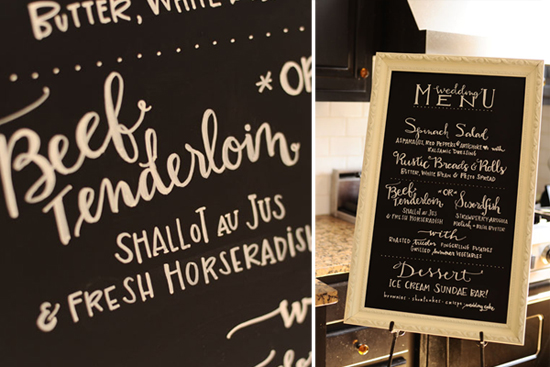 BUTTER, WHITE
*OR
Beef
Tenderloin
SHALLOT AU JUS
& FRESH HORSERADISH
wedding
MENU
Spinach Salad
ASPARAGUS, RED PEPPERS & ARTICHOKE with
BALSAMIC DRESSING
Rustic Breads & Rolls
BUTTER, WHITE BEAN & PESTO SPREAD
Beef *OR* Swordfish
Tenderloin
SHALLOT AU JUS
& FRESH HORSERADISH
with
ROASTED FINGERLING POTATOES
GRILLED Summer VEGETABLES
Dessert
ICE CREAM SUNDAE BAR!
brownies
wedding cake